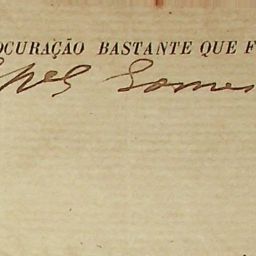 OCURAÇÃO BASTANTE QUE F
opes Gomes